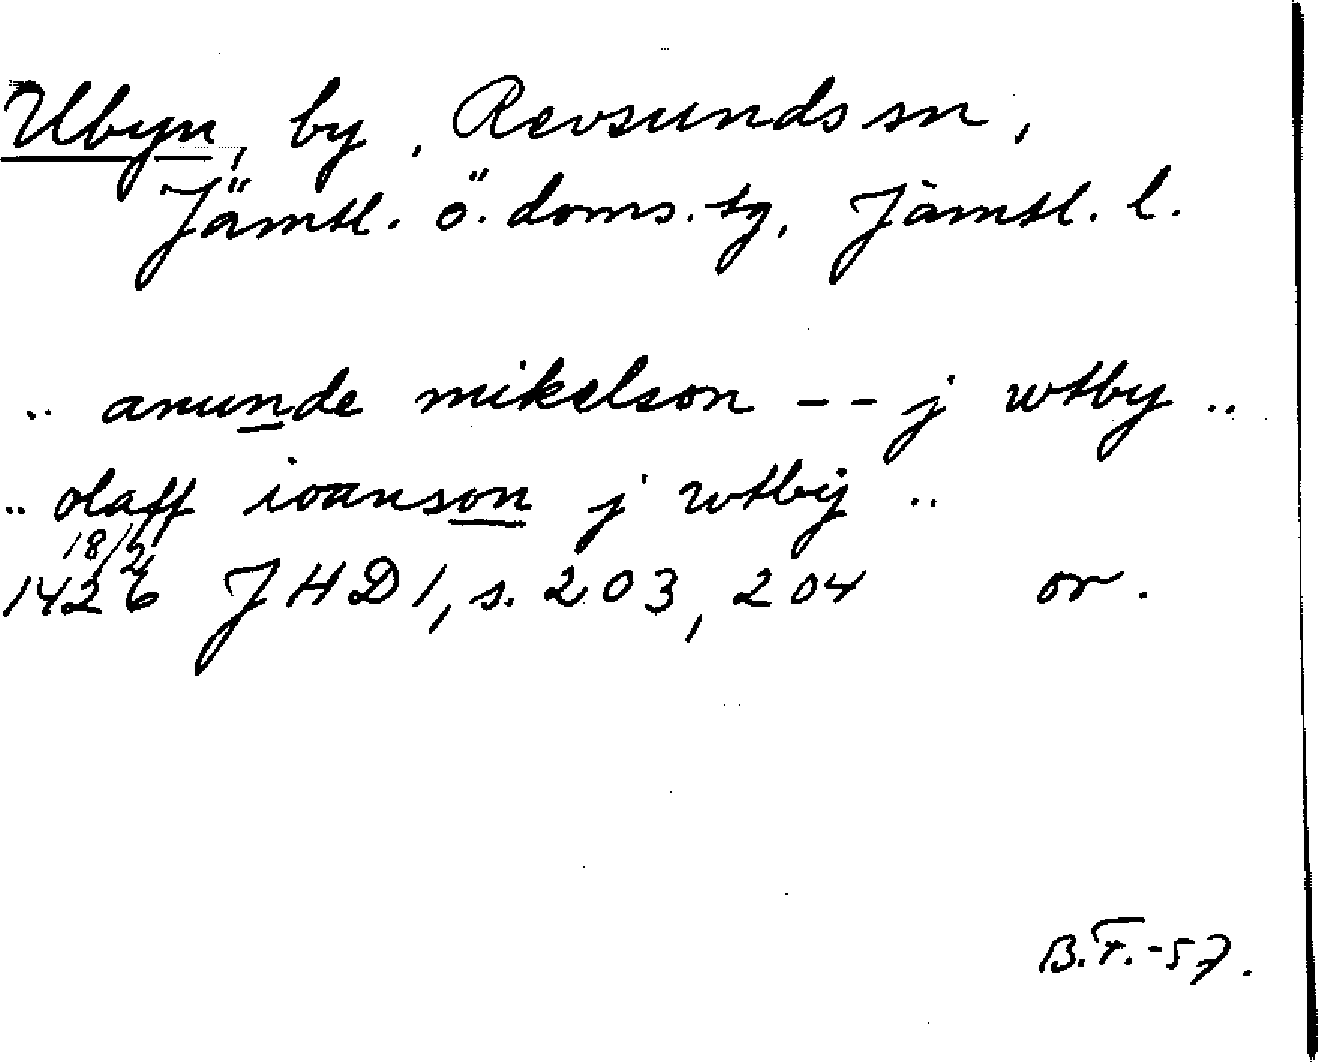 Ubyn, by, Revsunds sn,
Jämtl. ö. doms. tg, Jämtl. l.
.. anunde mikelson -- j wtby ..
.. olaff ioanson j wtbÿ ..
18/2
1426 JHD 1, s. 203, 204 or.
B.F.-57.